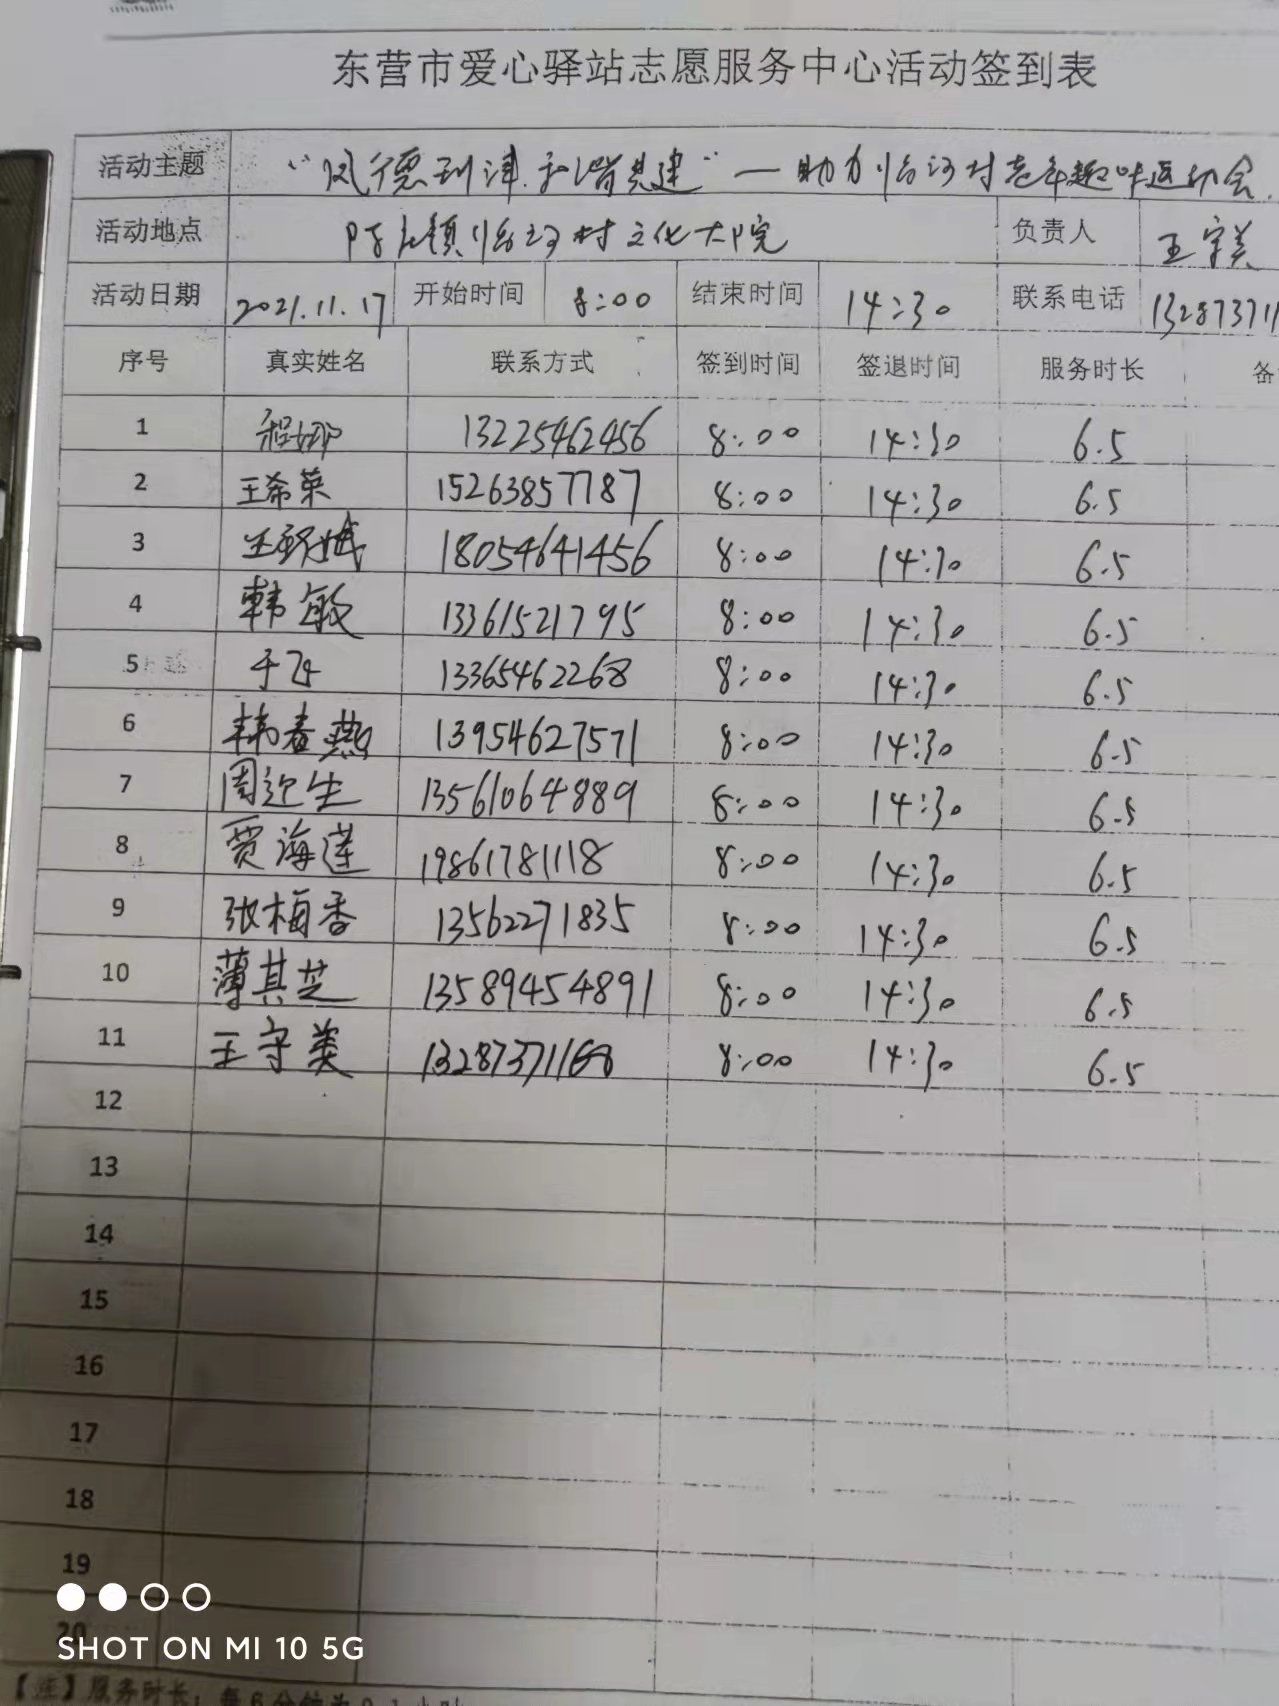 东营市爱心驿站志愿服务中心活动签到表
活动主题 “凤德利津.和谐共建”—助力 村老年趣味运动会.
活动地点 镇 村文化大院 负责人 王守美
活动日期 2021.11.17 开始时间 8:00 结束时间 14:30 联系电话 132873711
序号 真实姓名 联系方式 签到时间 签退时间 服务时长 备
1 程娜 13225462456 8:00 14:30 6.5
2 王希荣 15263857787 8:00 14:30 6.5
3 18054641456 8:00 14:30 6.5
4 韩敏 13361521795 8:00 14:30 6.5
5 于飞 13365462268 8:00 14:30 6.5
6 韩春燕 13954627571 8:00 14:30 6.5
7 周迎生 13561064889 8:00 14:30 6.5
8 贾海莲 19861781118 8:00 14:30 6.5
9 张梅香 13562271835 8:00 14:30 6.5
10 薄其芝 13589454891 8:00 14:30 6.5
11 王守美 13287371168 8:00 14:30 6.5
12
13
14
15
16
17
18
19
20
SHOT ON MI 10 5G
【注】服务时长：每6分钟为0.1小时